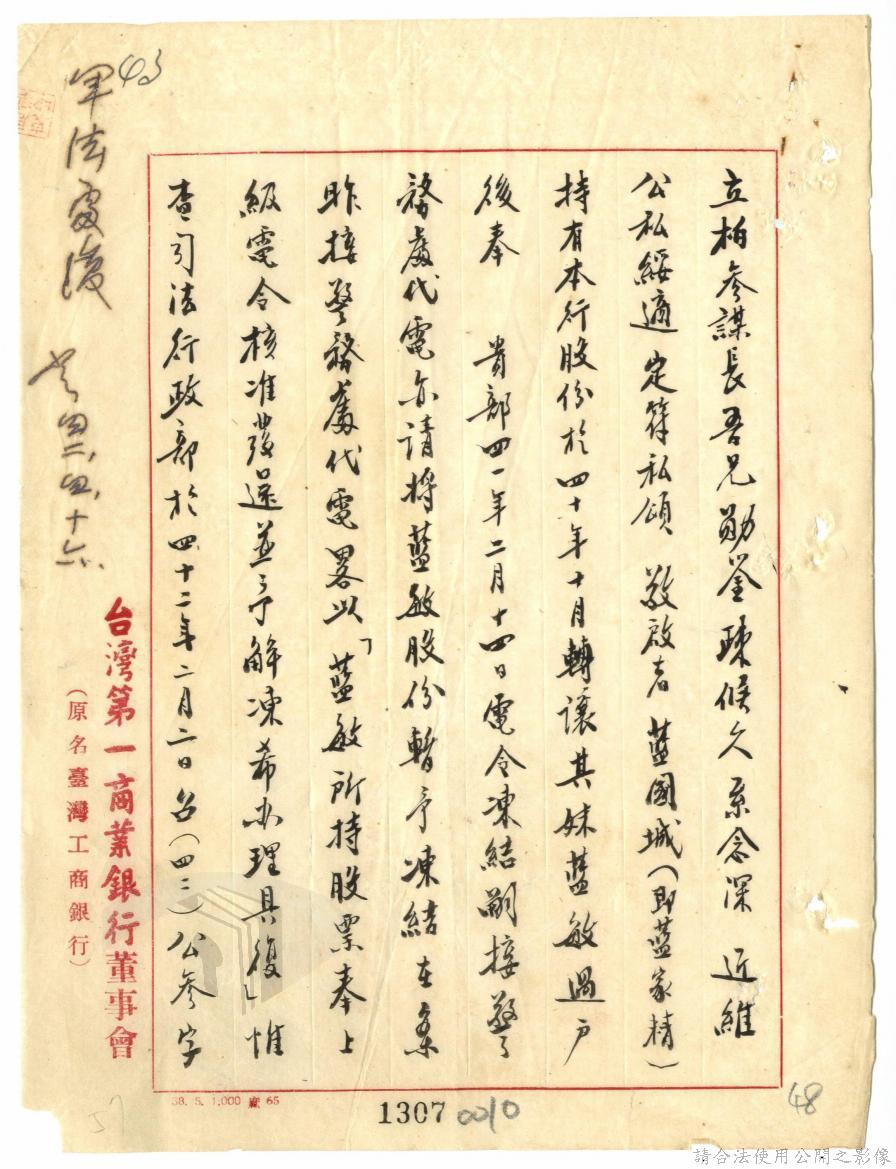 立柏參謀長吾兄勛鑒踈候久系念深 近維
公私綏適定符私頌 敬啟者藍國城(即藍家精)
持有本行股份於四十年十月轉讓其妹藍敏過户
後奉 貴部四一年二月十四日電令凍結嗣接警
務處代電亦請將藍敏股份暫予凍結在案
昨接警務處代電畧以「藍敏所持股票奉上
級電令核准發還並予解凍希办理具復」惟
查司法行政部於四十二年二月二日台(四二)公參字
台灣第一商業銀行董事會
(原名臺灣工商銀行)
軍法處復
四二,四,十六
38. 5. 1,000 寬 65
1307
0010
48
57
請合法使用公開之影像